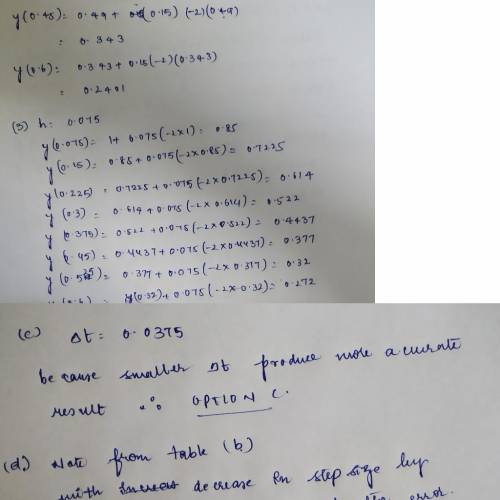 y(0.45) = 0.49 + (0.15) (-2)(0.49)
= 0.343
y(0.6) = 0.343 + 0.15(-2)(0.343)
= 0.2401
(3) h = 0.075
y(0.075) = 1 + 0.075(-2×1) = 0.85
y(0.15) = 0.85 + 0.075(-2×0.85) = 0.7225
y(0.225) = 0.7225 + 0.075(-2×0.7225) = 0.614
y(0.3) = 0.614 + 0.075(-2×0.614) = 0.522
y(0.375) = 0.522 + 0.075(-2×0.522) = 0.4437
y(0.45) = 0.4437 + 0.075(-2×0.4437) = 0.377
= 0.377 + 0.075(-2×0.377) = 0.32
y(0.32) + 0.075(-2×0.32) = 0.272
(c) Δt = 0.0375
because smaller Δt produce more accurate
result ∴ OPTION C.
(d.) Note from table (b)
with decrease in step size by
the error.